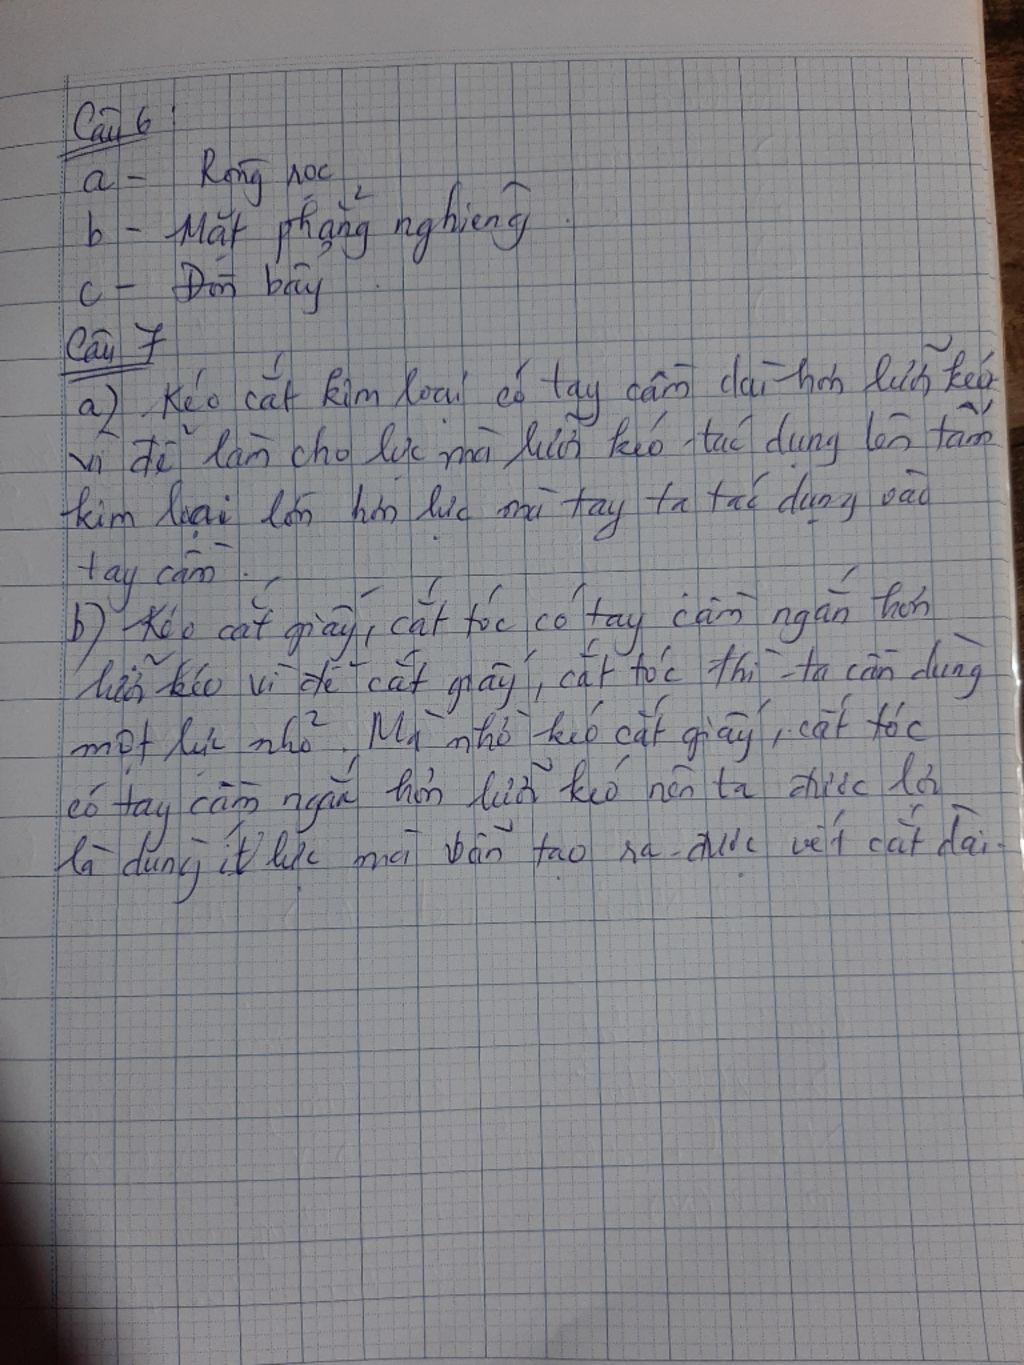 Câu 6:
a - Ròng rọc
b - Mặt phẳng nghiêng.
c - Đòn bẩy.
Câu 7
a) Kéo cắt kim loại có tay cầm dài hơn lưỡi kéo
vì để làm cho lực mà lưỡi kéo tác dụng lên tấm
kim loại lớn hơn lực mà tay ta tác dụng vào
tay cầm.
b) Kéo cắt giấy, cắt tóc có tay cầm ngắn hơn
lưỡi kéo vì để cắt giấy, cắt tóc thì ta cần dùng
một lực nhỏ. Mà nhờ kéo cắt giấy, cắt tóc
có tay cầm ngắn hơn lưỡi kéo nên ta được lợi
là dùng ít lực mà vẫn tạo ra được vết cắt dài.